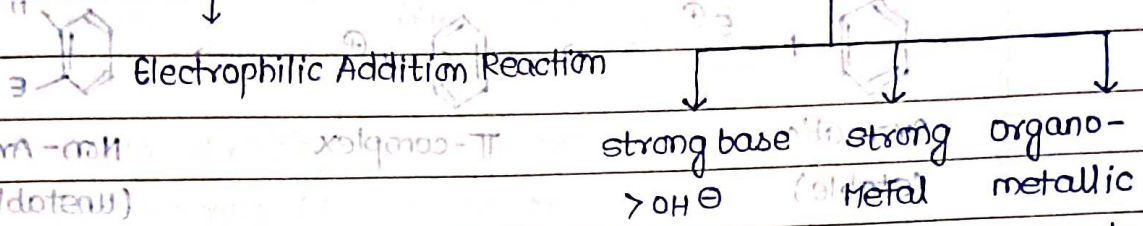 Electrophilic Addition Reaction
strong base strong organo-
> OH ⊖ Metal metallic